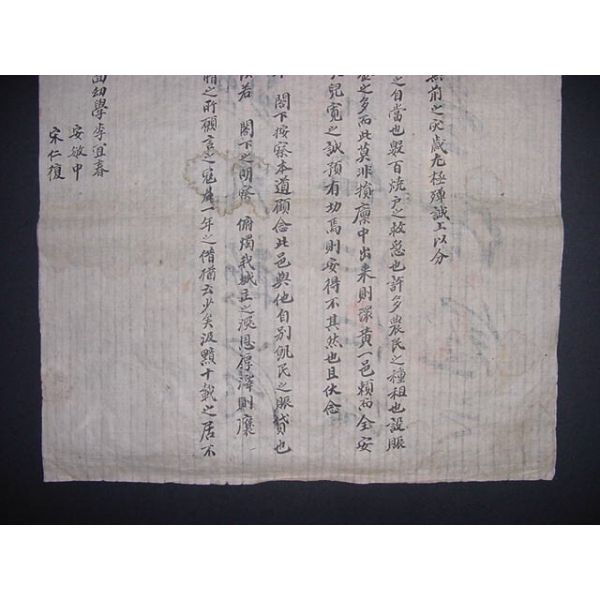 前之灾歲尤極殫誠上以分
之自當也數百燒戶之救急也許多農民之種租也設賑
之多而此莫非捐廩中出來則環黃一邑賴而全安
兒寬之誠預有功焉則安得不其然也且伏念
閤下按察本道顧念此邑與他自別飢民之賑貸也
若 閤下之明察 俯燭我城主之深恩厚澤則廩
之所願言之寃 一年之借猶云少矣汲黯十載之居不
幼學李宜春
安敏中
宋仁復